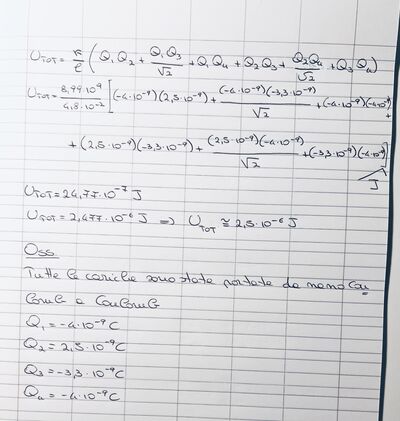 U_TOT = K/ℓ (Q₁Q₂ + Q₁Q₃/√2 + Q₁Q₄ + Q₂Q₃ + Q₂Q₄/√2 + Q₃Q₄)
U_TOT = 8,99·10⁹/4,8·10⁻² [(-4·10⁻⁹)(2,5·10⁻⁹) + (-4·10⁻⁹)(-3,3·10⁻⁹)/√2 + (-4·10⁻⁹)(-4·10⁻⁹) +
+ (2,5·10⁻⁹)(-3,3·10⁻⁹) + (2,5·10⁻⁹)(-4·10⁻⁹)/√2 + (-3,3·10⁻⁹)(-4·10⁻⁹)]
J
U_TOT = 24,77·10⁻⁷ J
U_TOT = 2,477·10⁻⁶ J ⇒ U_TOT ≅ 2,5·10⁻⁶ J
Oss
Tutte le cariche sono state portate da nanoCou
Comb a Coulomb
Q₁ = -4·10⁻⁹ C
Q₂ = 2,5·10⁻⁹ C
Q₃ = -3,3·10⁻⁹ C
Q₄ = -4·10⁻⁹ C